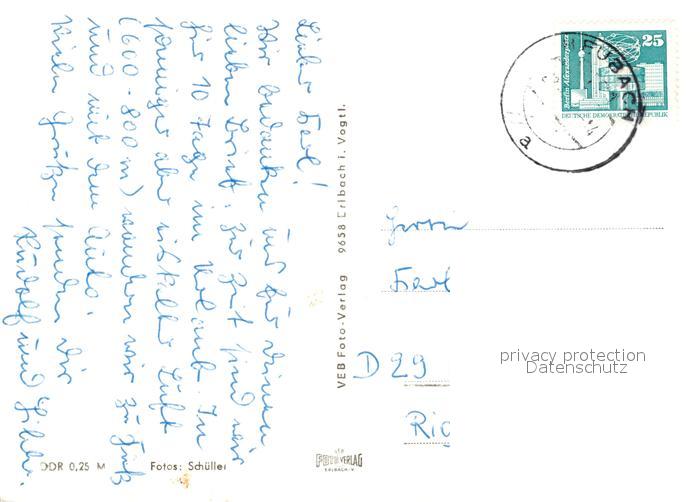 Lieber Karl!
Wir bedanken uns für Deinen
lieben Brief. Zur Zeit sind wir
für 10 Tage im Urlaub. In
sonniger aber eiskalter Luft
(600-800 m) wandern wir zu Fuß
und mit dem Auto.
Viele Grüße senden Dir
Rudolf und
VEB Foto-Verlag 9658 Erlbach i. Vogtl.
DDR 0,25 M Fotos: Schüller
FOTO VERLAG
ERLBACH-V.
25
Berlin-Alexanderplatz
DEUTSCHE DEMOKRATISCHE REPUBLIK
EUBACH
a
Herrn
Karl
D 29
privacy protection
Datenschutz